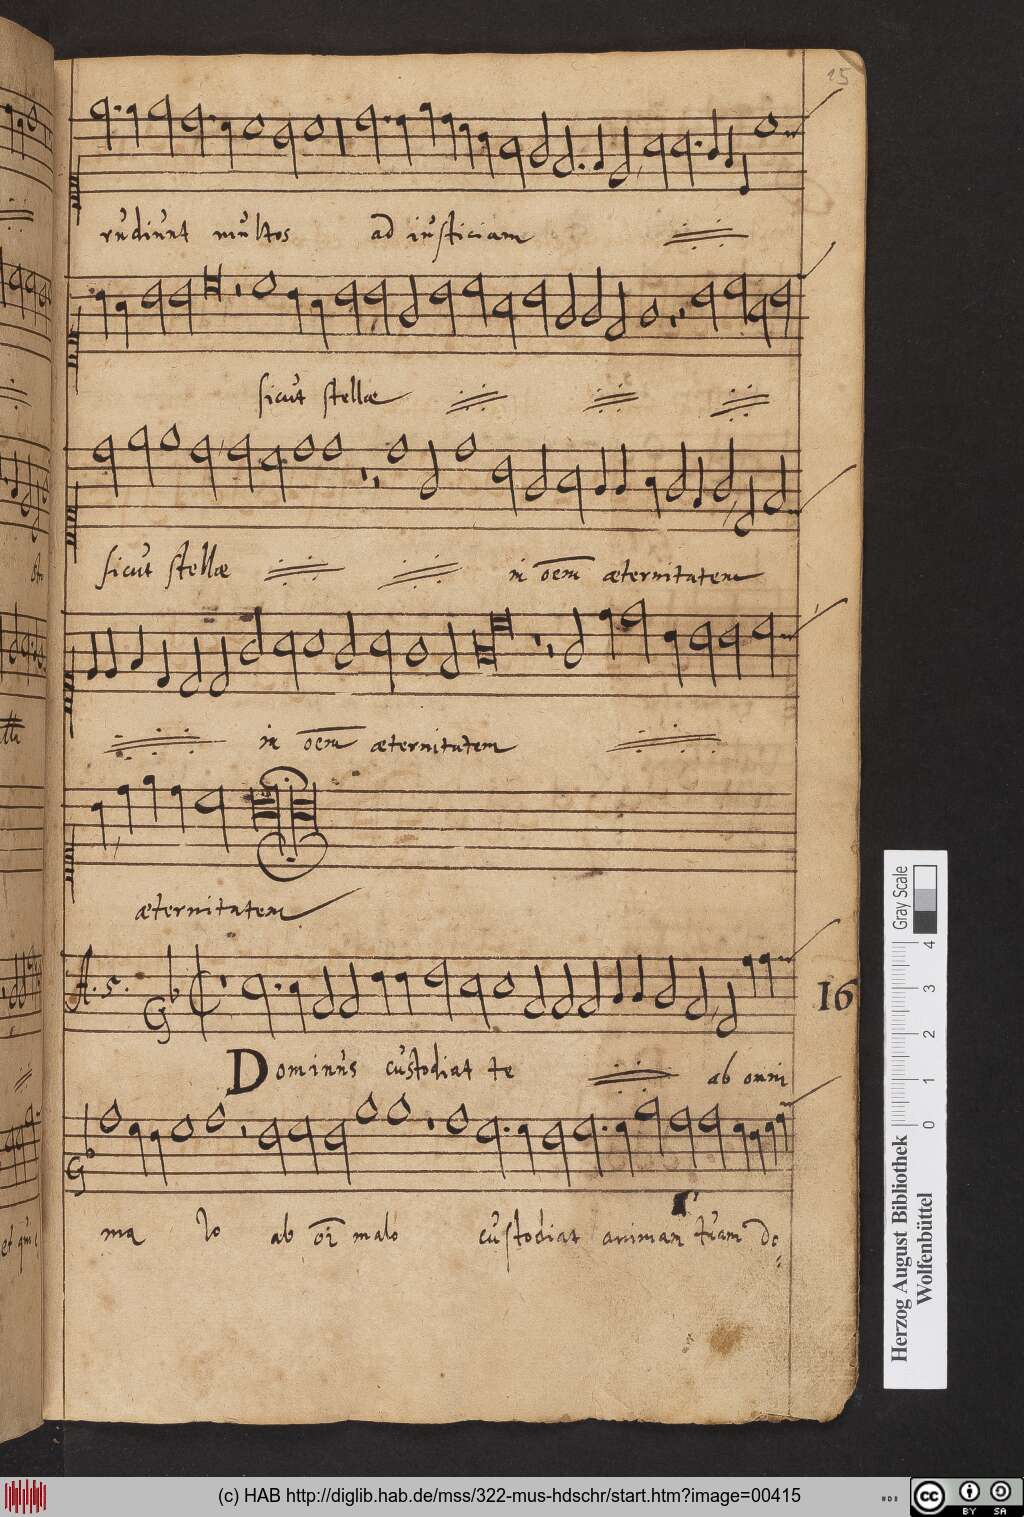 15
rudiunt multos ad iusticiam
sicut stellæ
sicut stellæ in oem æternitatem
in oem æternitatem
æternitatem
A. 5.
16
Dominus custodiat te ab omni
ma lo ab oi malo custodiat animam tuam do
Gray Scale
0 1 2 3 4
Herzog August Bibliothek
Wolfenbüttel
(c) HAB http://diglib.hab.de/mss/322-mus-hdschr/start.htm?image=00415
cc BY SA